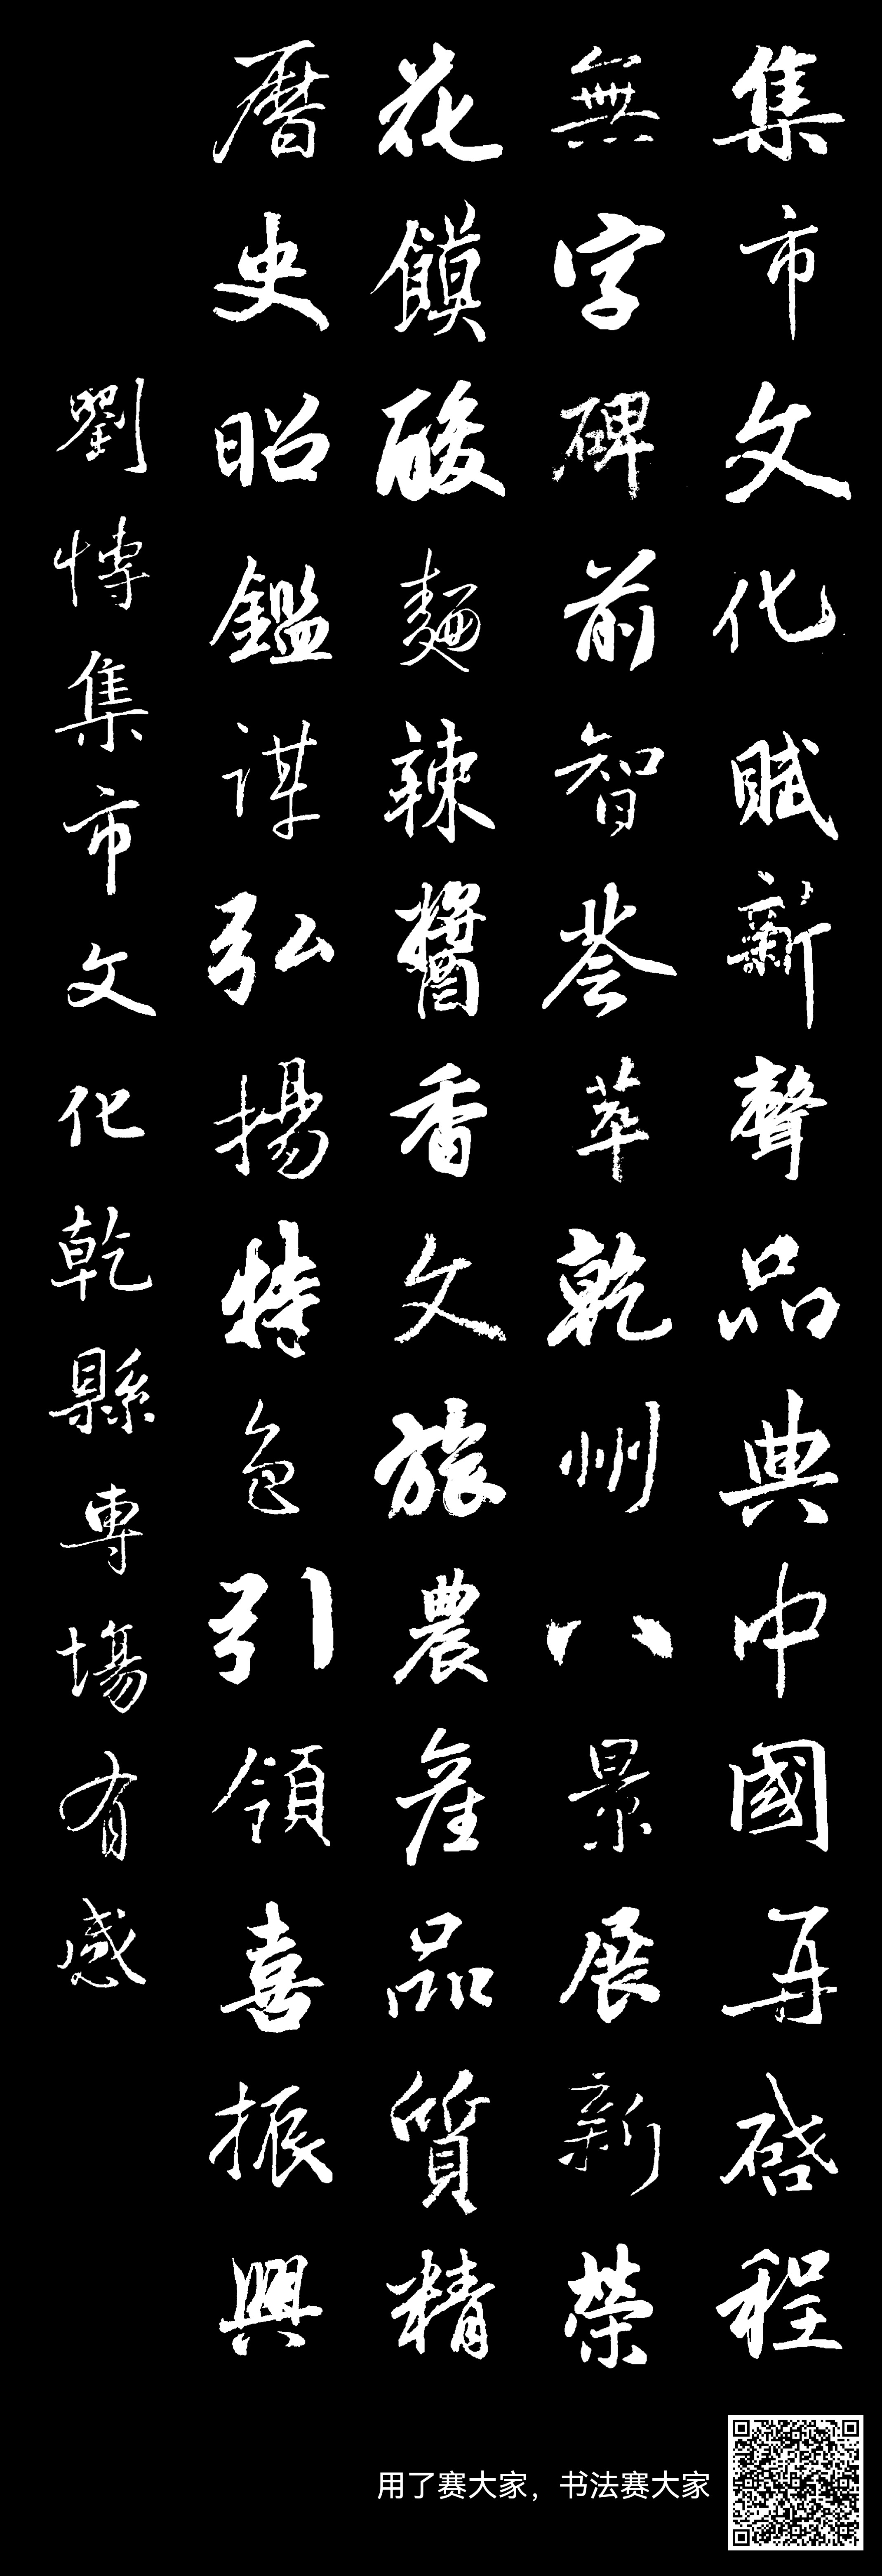 集市文化賦新聲品典中國再啓程
無字碑前智薈萃乾州八景展新榮
花饃酸麵辣醬香文旅農產品質精
曆史昭鑑謀弘揚特色引領喜振興
劉博集市文化乾縣專場有感
用了赛大家，书法赛大家